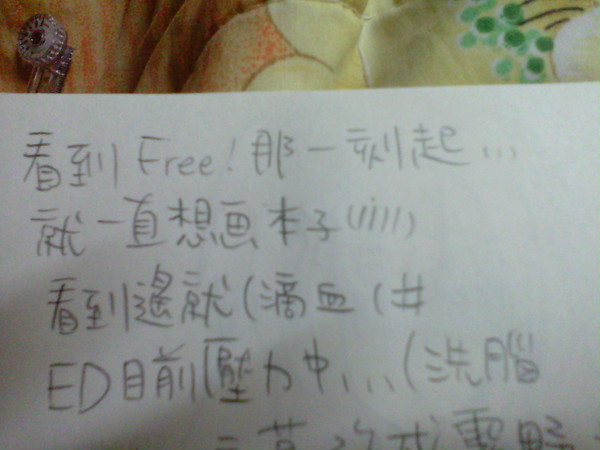 看到 Free! 那一刻起...
就一直想画本子(////)
看到邊就(滴血(#
ED目前壓力中...(洗腦